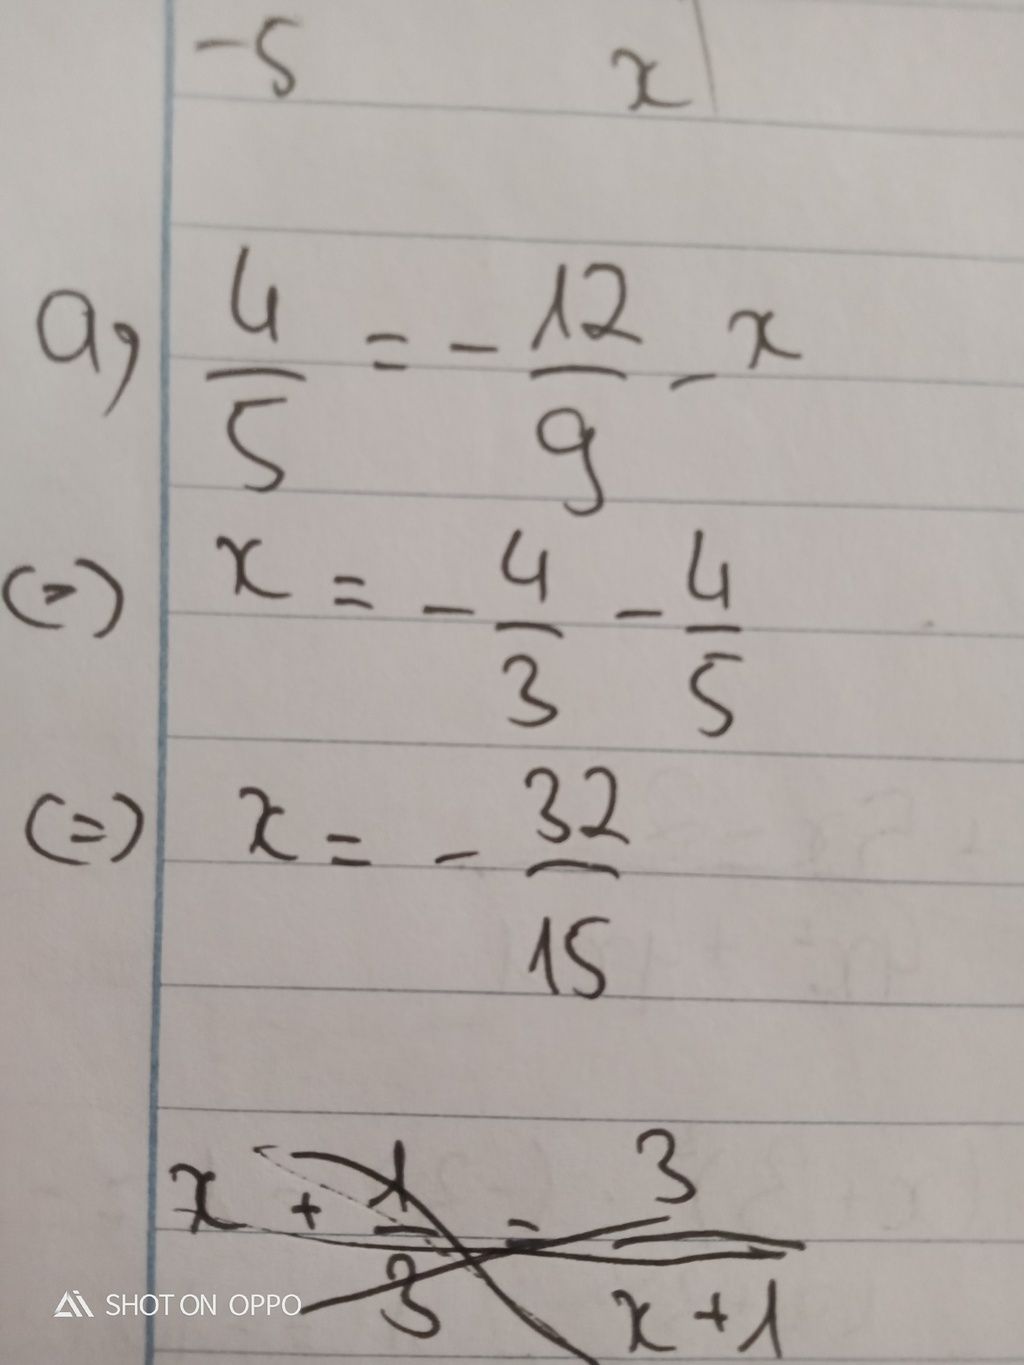 -5 x
a, 4/5 = - 12/9 - x
(=) x = - 4/3 - 4/5
(=) x = - 32/15
x + 1/3 = 3/x+1
SHOT ON OPPO